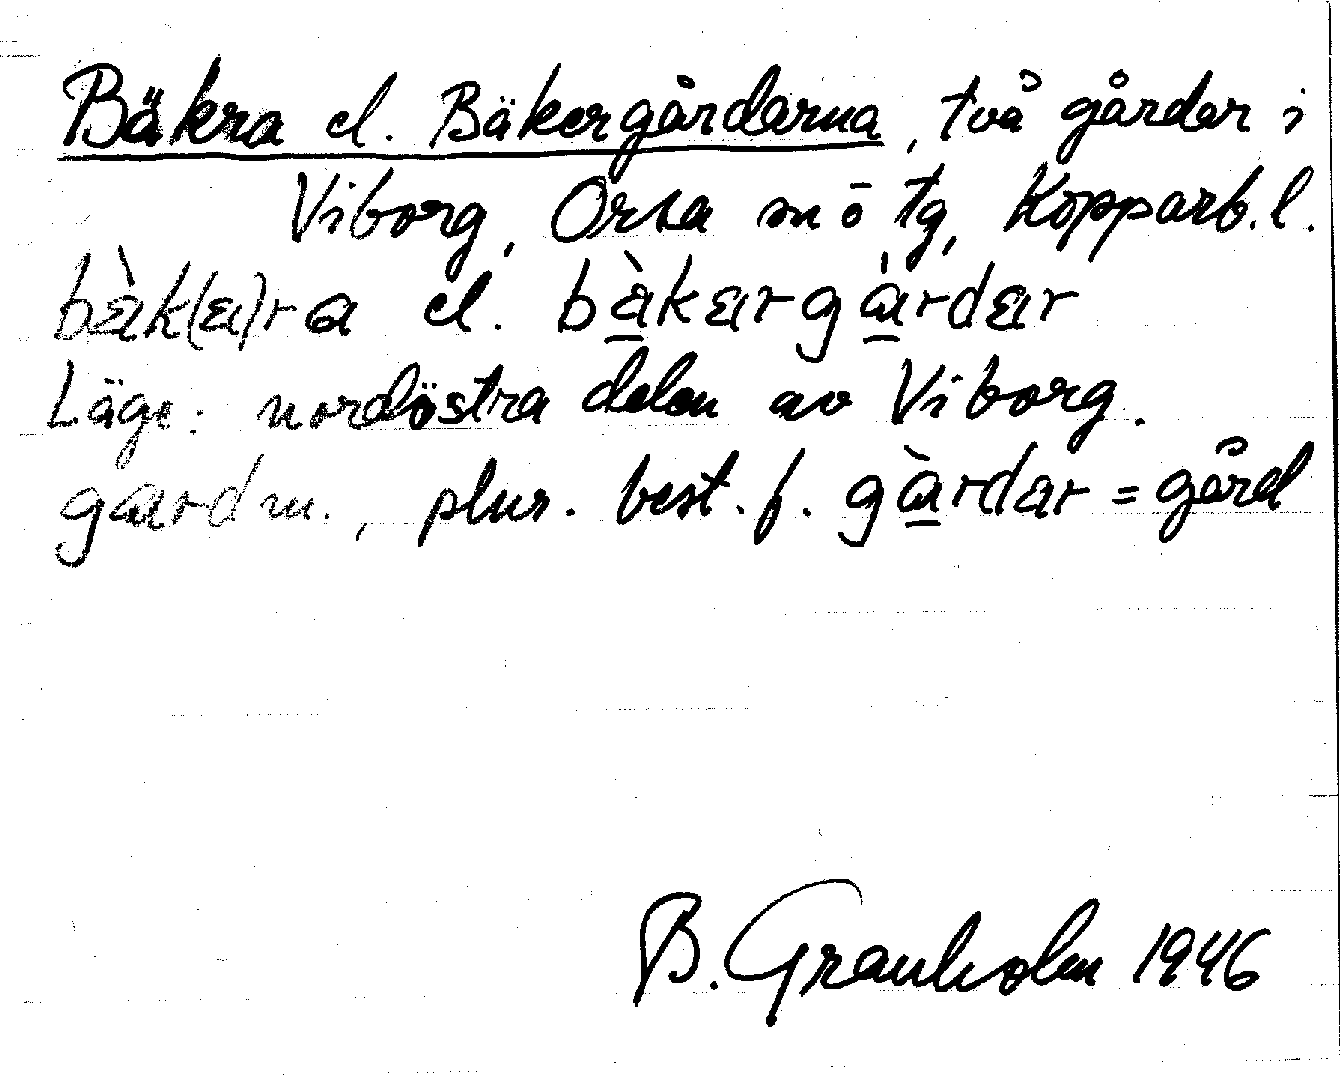 Bäkra el. Bäkergårdarna, två gårdar i
Viborg, Orsa sn ö tg, Kopparb. l.
bàk(a)ra el. bàkargàrdar
Läge: nordöstra delen av Viborg.
gard m., plur. best. f. gàrdar = gård
B. Granholm 1946